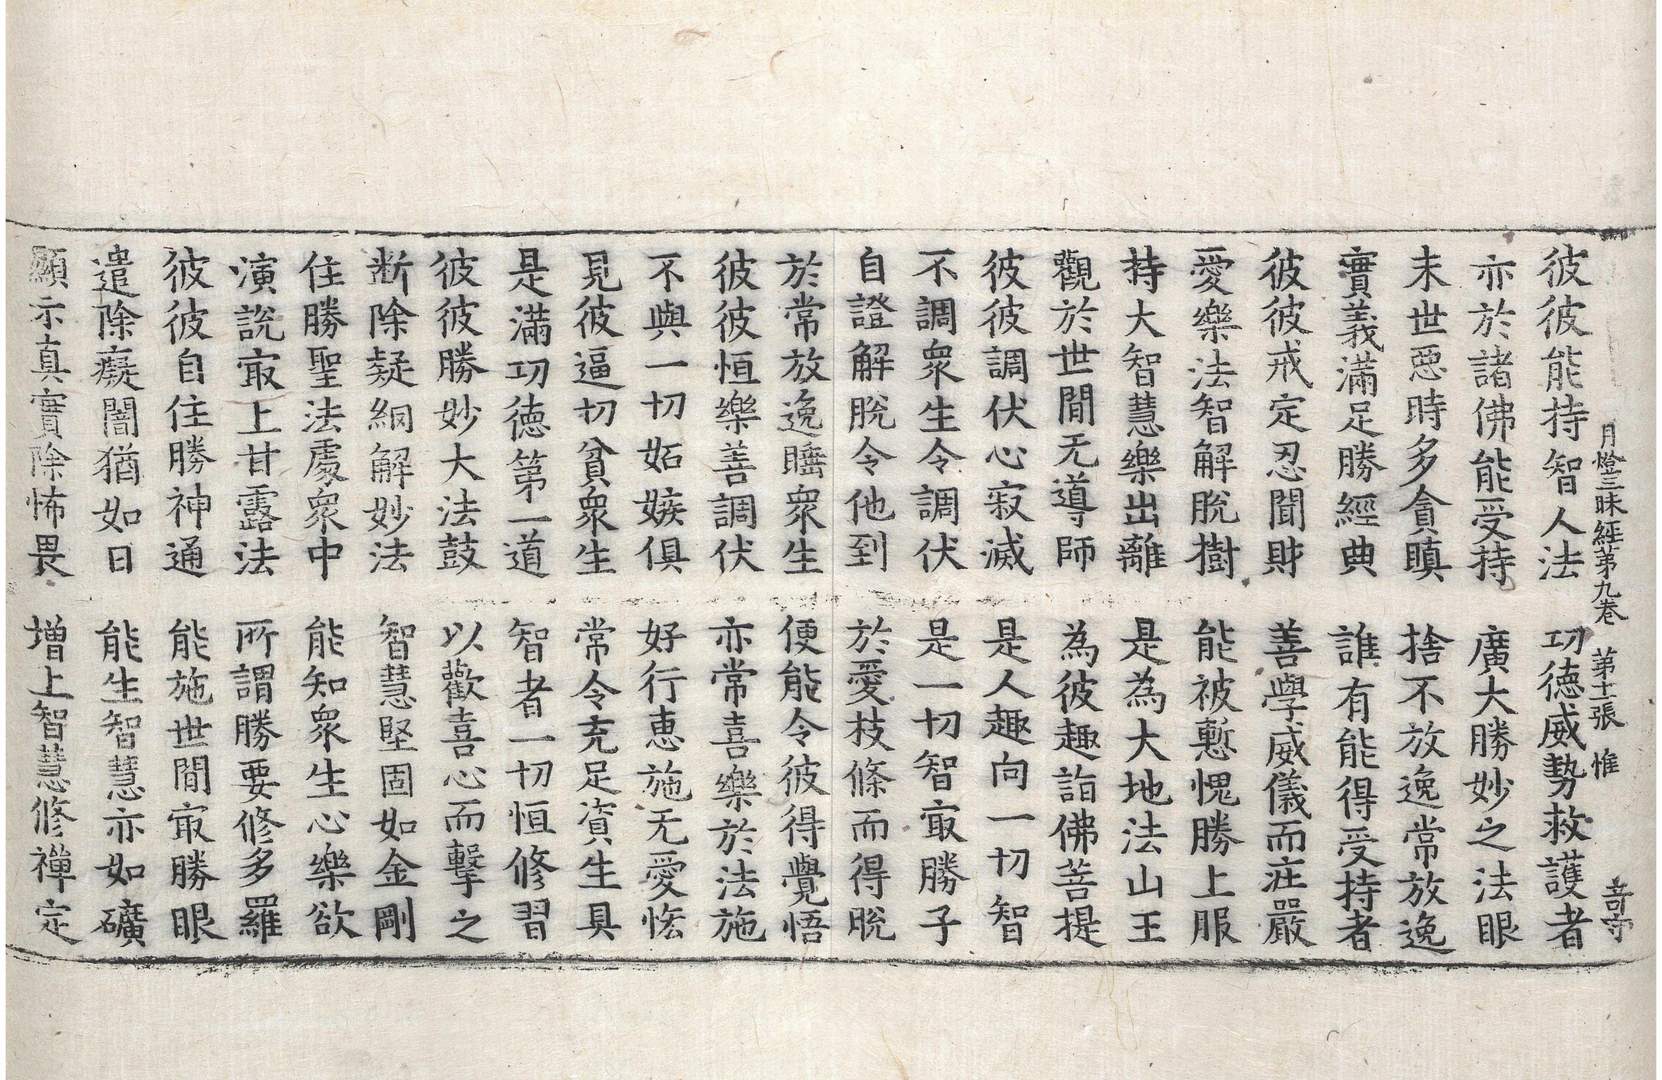 月燈三昧經第九卷 第十一張 惟
彼彼能持智人法 功德威勢救護者
亦於諸佛能受持 廣大勝妙之法眼
末世惡時多貪瞋 捨不放逸常放逸
實義滿足勝經典 誰有能得受持者
彼彼戒定忍聞財 善學威儀而莊嚴
愛樂法智解脫樹 能被慙愧勝上服
持大智慧樂出離 是為大地法山王
觀於世間无導師 為彼趣詣佛菩提
彼彼調伏心寂滅 是人趣向一切智
不調衆生令調伏 是一切智㝡勝子
自證解脫令他到 於愛枝條而得脫
於常放逸睡衆生 便能令彼得覺悟
彼彼恒樂善調伏 亦常喜樂於法施
不與一切妬嫉俱 好行惠施无愛恡
見彼逼切貧衆生 常令充足資生具
是滿功德第一道 智者一切恒修習
彼彼勝妙大法鼓 以歡喜心而擊之
断除疑網解妙法 智慧堅固如金剛
住勝聖法處衆中 能知衆生心樂欲
演說㝡上甘露法 所謂勝要修多羅
彼彼自住勝神通 能施世間㝡勝眼
遣除癡闇猶如日 能生智慧亦如礦
顯示真實除怖畏 增上智慧修禪定